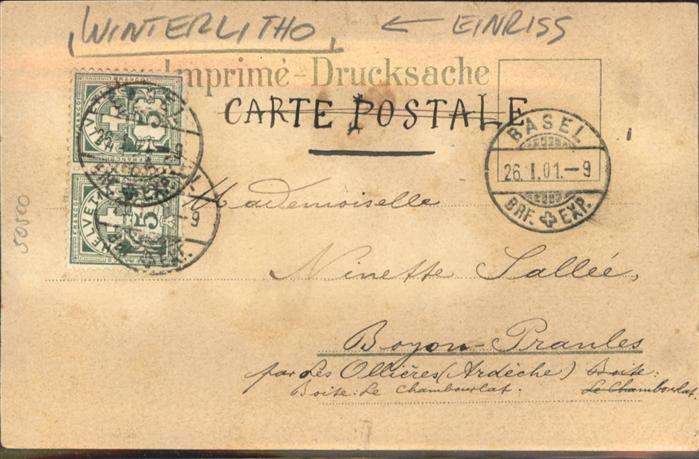 "WINTERLITHO" ← EINRISS
Imprimé-Drucksache
CARTE POSTALE
HELVETIA 5
HELVETIA 5
BASEL
26.I.01.–9
BRF. EXP.
50500
Mademoiselle
Ninette Sallée,
Boyon-Pranles
par Les Ollières (Ardèche) Boite:
Boite: Le Chambourlat. Le Chambourlat.